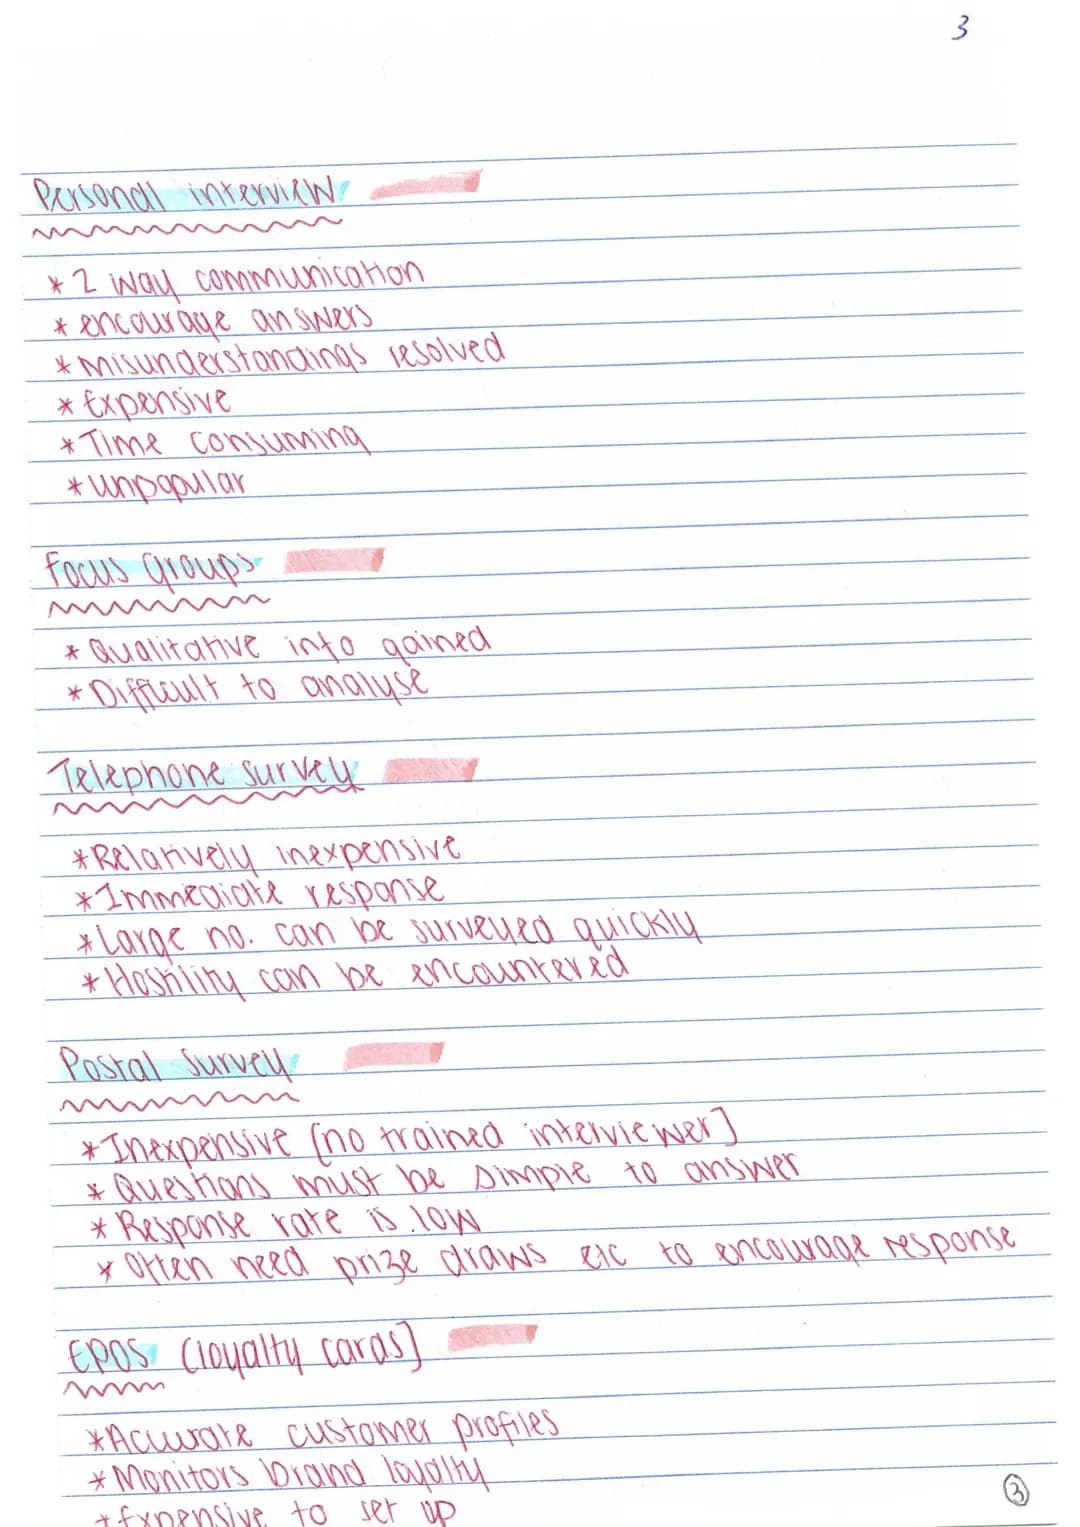 3
Personal interview
* 2 way communication
* encourage answers
* Misunderstandings resolved
* Expensive
* Time consuming
* unpopular
Focus groups
* Qualitative info gained
* Difficult to analyse
Telephone survey
* Relatively inexpensive
* Immediate response
* Large no. can be surveyed quickly
* Hostility can be encountered
Postal survey
* Inexpensive (no trained interviewer)
* Questions must be simple to answer
* Response rate is low
* Often need prize draws etc to encourage response
EPOS (loyalty cards)
* Accurate customer profiles
* Monitors brand loyalty
* Expensive to set up
3